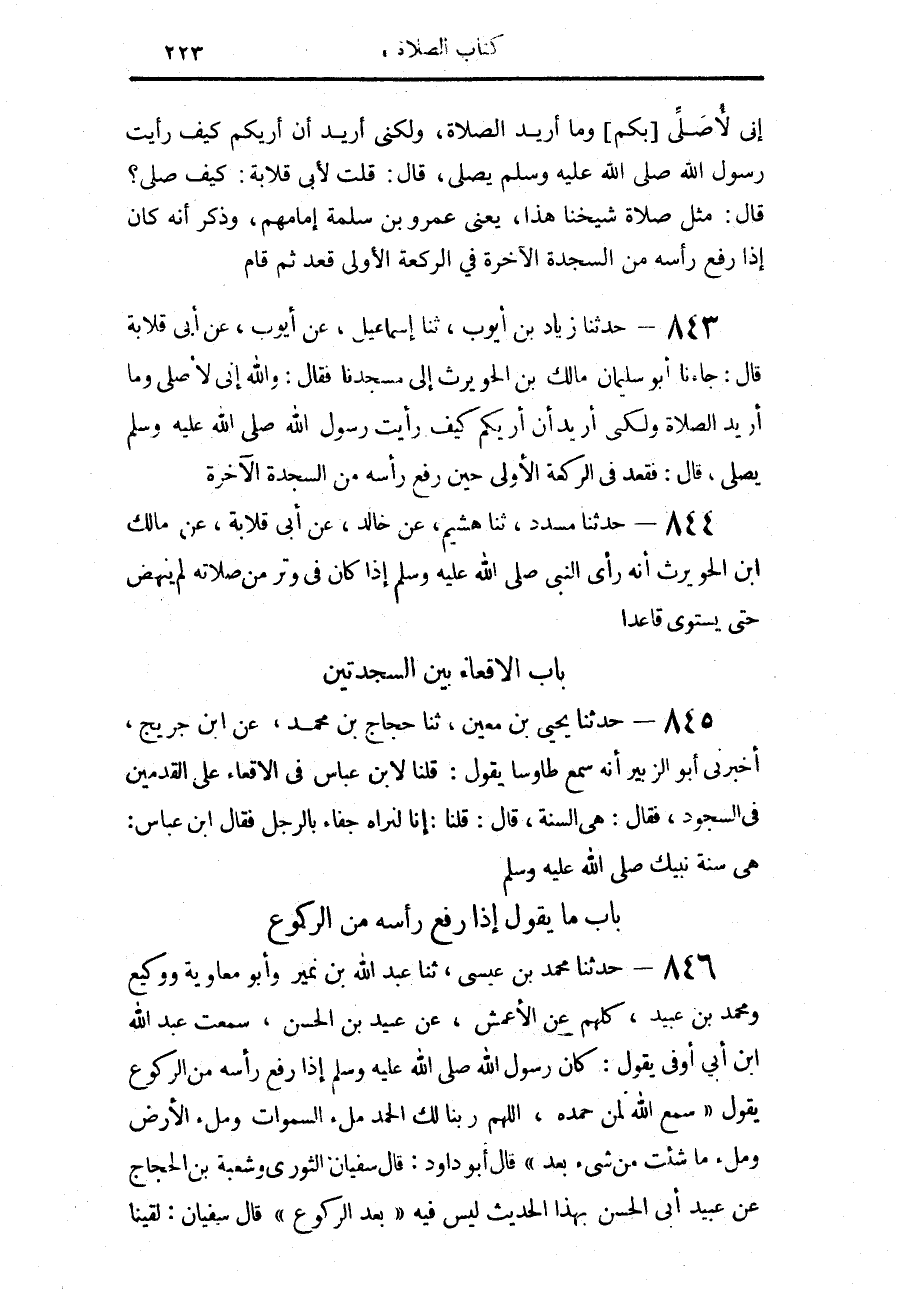 كتاب الصلاة ، ٢٢٣
إنى لأُصَلِّى [بكم] وما أريد الصلاة، ولكنى أريد أن أريكم كيف رأيت
رسول الله صلى الله عليه وسلم يصلى، قال: قلت لأبي قلابة: كيف صلى؟
قال: مثل صلاة شيخنا هذا، يعنى عمرو بن سلمة إمامهم، وذكر أنه كان
إذا رفع رأسه من السجدة الآخرة في الركعة الأولى قعد ثم قام
٨٤٣ — حدثنا زياد بن أيوب ، ثنا إسماعيل ، عن أيوب ، عن أبى قلابة
قال : جاءنا أبو سليمان مالك بن الحويرث إلى مسجدنا فقال : والله إنى لأصلى وما
أريد الصلاة ولكنى أريد أن أريكم كيف رأيت رسول الله صلى الله عليه وسلم
يصلى ، قال : فقعد فى الركعة الأولى حين رفع رأسه من السجدة الآخرة
٨٤٤ — حدثنا مسدد ، ثنا هشيم، عن خالد ، عن أبى قلابة ، عن مالك
ابن الحويرث أنه رأى النبى صلى الله عليه وسلم إذا كان فى وتر من صلاته لم ينهض
حتى يستوى قاعدا
باب الاقعاء بين السجدتين
٨٤٥ — حدثنا يحيى بن معين ، ثنا حجاج بن محمد ، عن ابن جريج ،
أخبرنى أبو الزبير أنه سمع طاوسا يقول : قلنا لابن عباس فى الاقعاء على القدمين
فى السجود ، فقال : هى السنة ، قال : قلنا : إنا لنراه جفاء بالرجل فقال ابن عباس:
هى سنة نبيك صلى الله عليه وسلم
باب ما يقول إذا رفع رأسه من الركوع
٨٤٦ — حدثنا محمد بن عيسى ، ثنا عبد الله بن نمير وأبو معاوية ووكيع
ومحمد بن عبيد ، كلهم عن الأعمش ، عن عبيد بن الحسن ، سمعت عبد الله
ابن أبي أوفى يقول : كان رسول الله صلى الله عليه وسلم إذا رفع رأسه من الركوع
يقول « سمع الله لمن حمده ، اللهم ربنا لك الحمد ملء السموات وملء الأرض
وملء ما شئت من شىء بعد » قال أبو داود : قال سفيان الثورى وشعبة بن الحجاج
عن عبيد أبى الحسن بهذا الحديث ليس فيه « بعد الركوع » قال سفيان : لقينا